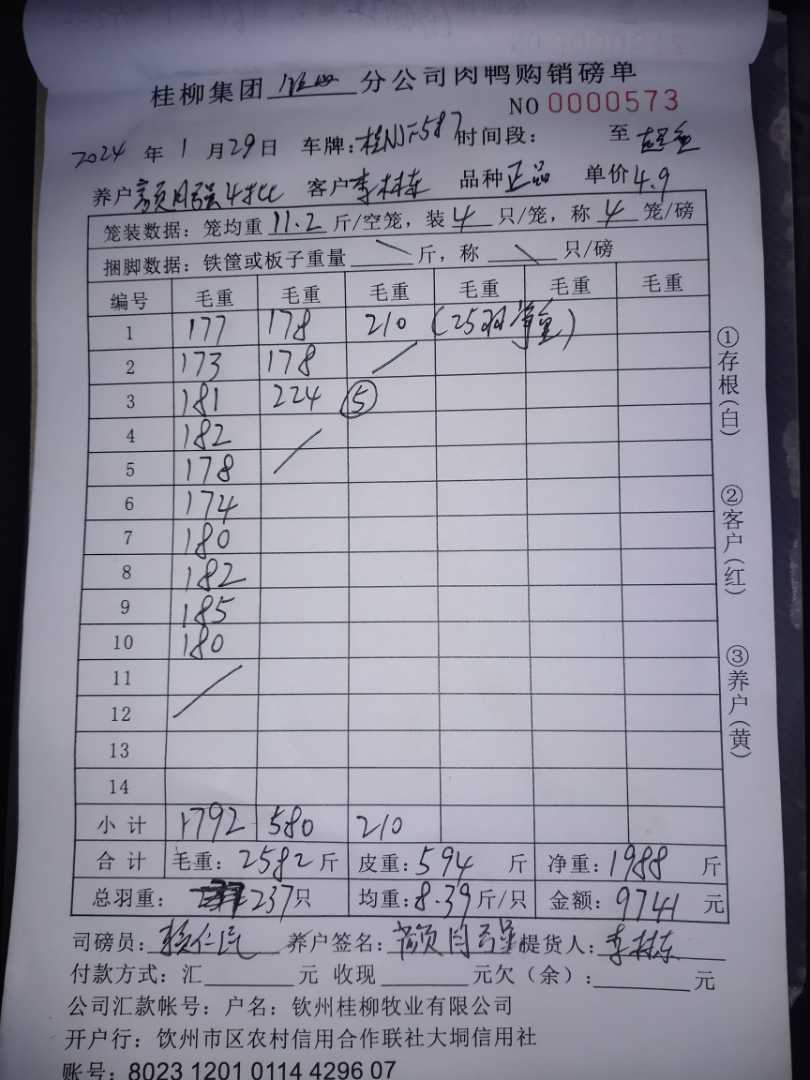 桂柳集团 分公司肉鸭购销磅单
NO 0000573
2024 年 1 月 29 日 车牌: 桂NJF587 时间段: 至
养户 颜月强4批 客户 李林东 品种 正品 单价 4.9
笼装数据: 笼均重 11.2 斤/空笼, 装 4 只/笼, 称 4 笼/磅
捆脚数据: 铁筐或板子重量 斤, 称 只/磅
编号 毛重 毛重 毛重 毛重 毛重 毛重
1 177 178 210 (25羽单重)
2 173 178
3 181 224 ⑤
4 182
5 178
6 174
7 180
8 182
9 185
10 180
11
12
13
14
小计 1792 580 210
合计 毛重: 2582 斤 皮重: 594 斤 净重: 1988 斤
总羽重: 237只 均重: 8.39 斤/只 金额: 9741 元
司磅员: 养户签名: 颜月强 提货人: 李林东
付款方式: 汇 元 收现 元欠(余): 元
公司汇款帐号: 户名: 钦州桂柳牧业有限公司
开户行: 饮州市区农村信用合作联社大垌信用社
账号: 8023 1201 0114 4296 07
①存根(白)
②客户(红)
③养户(黄)